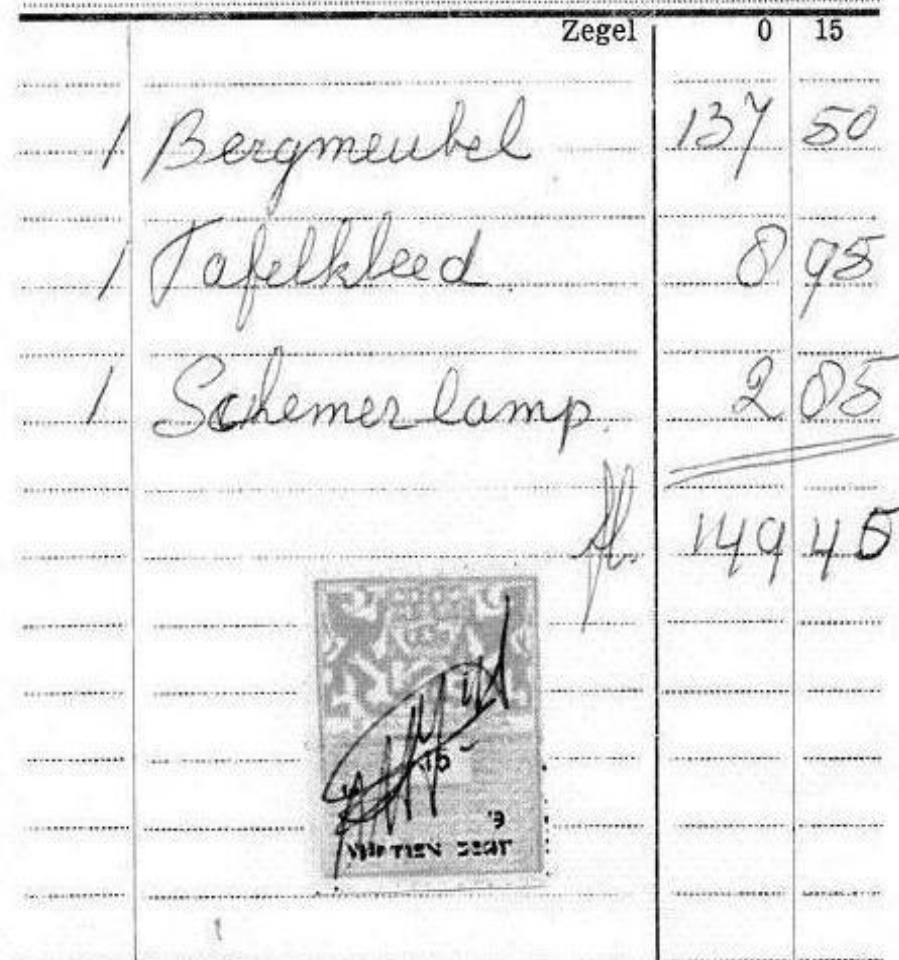 Zegel 0 15
1 Bergmeubel 137 50
1 Tafelkleed 8 95
1 Schemerlamp. 2 85
fl. 149 45
15
VIJFTIEN CENT